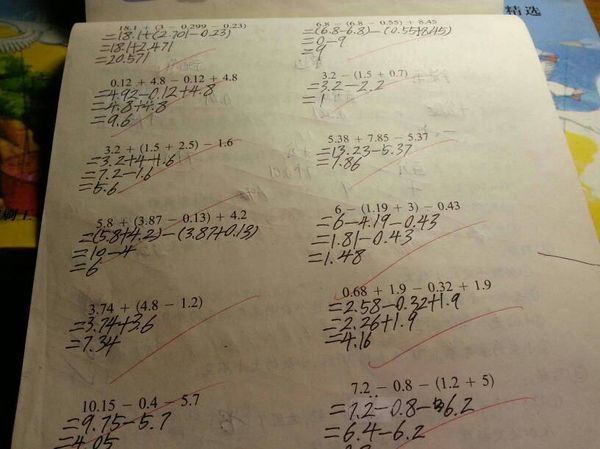 精选
18.1 + (3 − 0.299 − 0.23)
=18.1+(2.701−0.23)
=18.1+2.471
=20.571
6.8 − (6.8 − 0.55) + 8.45
=(6.8−6.8)−(0.55+8.45)
=0−9
=9
0.12 + 4.8 − 0.12 + 4.8
=4.92−0.12+4.8
=4.8+4.8
=9.6
3.2 − (1.5 + 0.7)
=3.2−2.2
=1
3.2 + (1.5 + 2.5) − 1.6
=3.2+4−1.6
=7.2−1.6
=5.6
5.38 + 7.85 − 5.37
=13.23−5.37
=7.86
5.8 + (3.87 − 0.13) + 4.2
=(5.8+4.2)−(3.87+0.13)
=10−4
=6
6 − (1.19 + 3) − 0.43
=6−4.19−0.43
=1.81−0.43
=1.48
3.74 + (4.8 − 1.2)
=3.74+3.6
=7.34
0.68 + 1.9 − 0.32 + 1.9
=2.58−0.32+1.9
=2.26+1.9
=4.16
10.15 − 0.4 − 5.7
=9.75−5.7
=4.05
7.2 − 0.8 − (1.2 + 5)
=7.2−0.8−6.2
=6.4−6.2